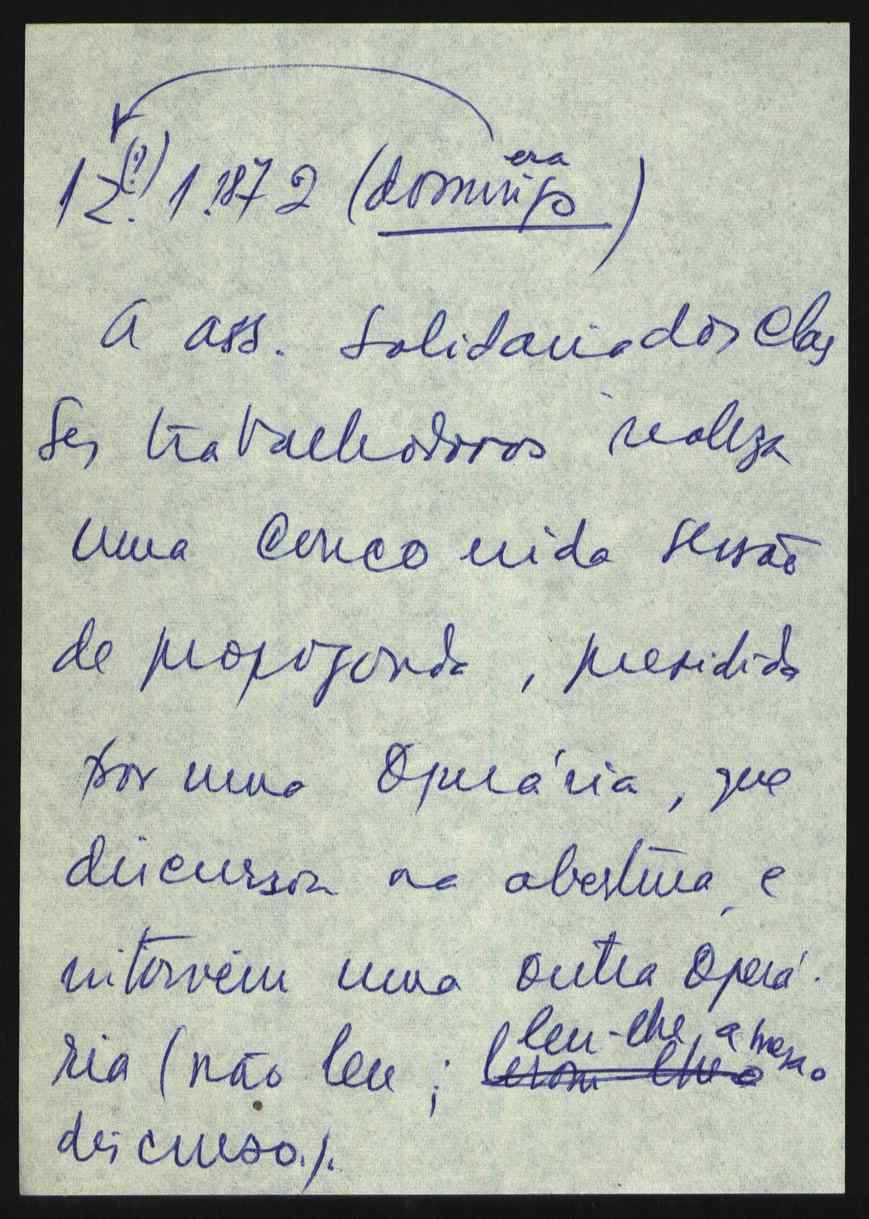 12(?). 1.1872 (era domingo)
A ass. Solidaria dos Clas
ses trabalhadoras realiza
uma concorrida sessão
de propaganda, presidida
por uma Operária, que
discursou na abertura, e
intervém uma outra Operá-
ria (não leu; leram-lhe o leu-lhe a mesa o
discurso.).